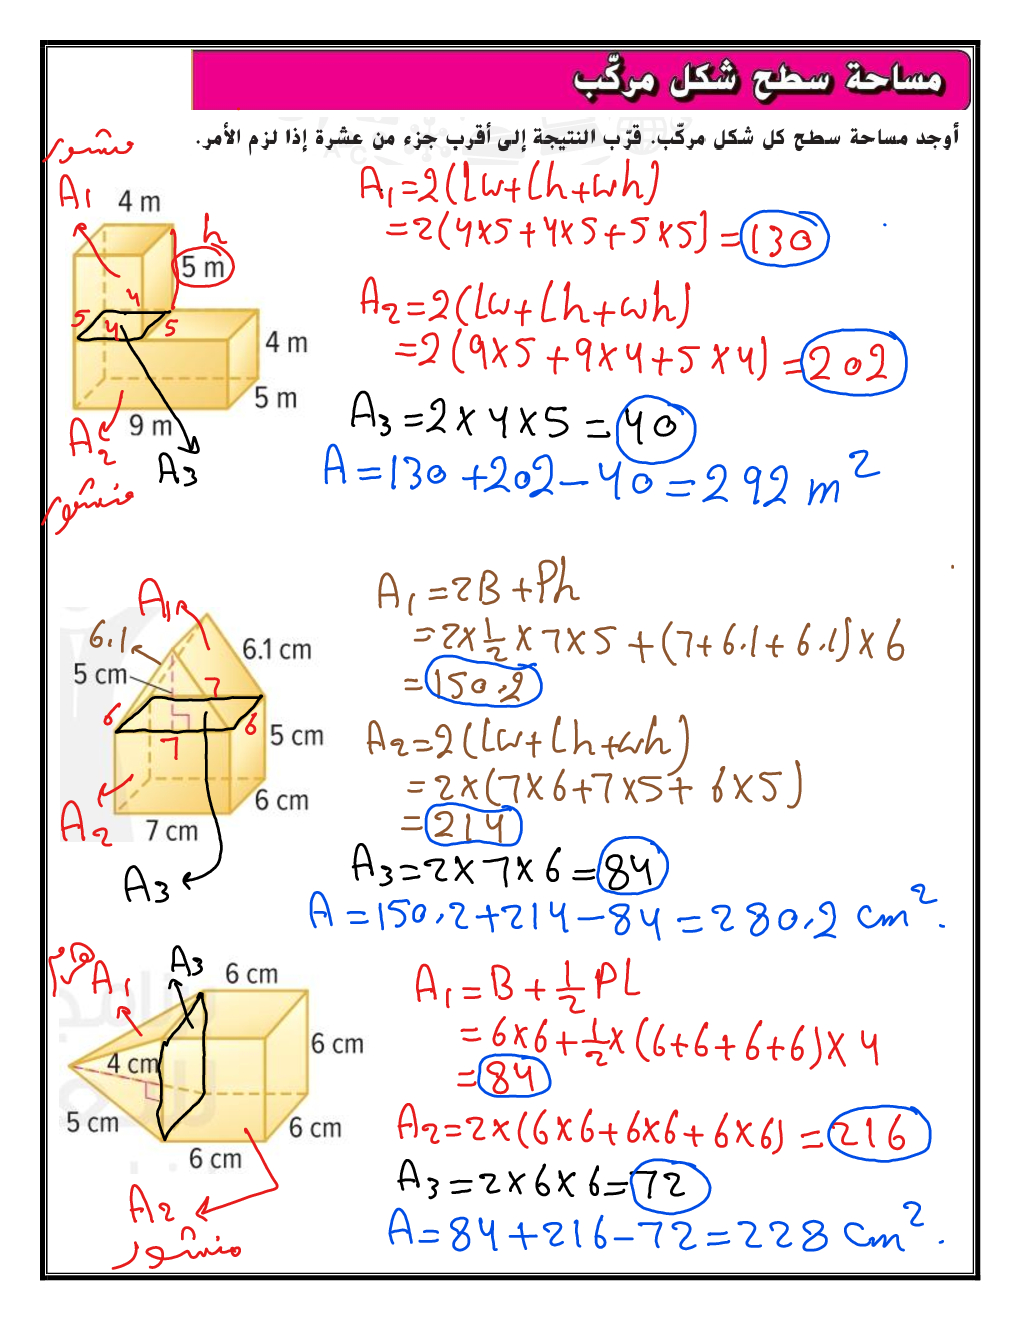 مساحة سطح شكل مركّب
أوجد مساحة سطح كل شكل مركّب. قرّب النتيجة إلى أقرب جزء من عشرة إذا لزم الأمر.
منشور
A1
4 m
h
5 m
4
5 4 5
4 m
5 m
9 m
A2
A3
منشور
A1=2(Lw+Lh+wh)
=2(4×5+4×5+5×5)=130
A2=2(Lw+Lh+wh)
=2(9×5+9×4+5×4)=202
A3=2×4×5=40
A=130+202-40=292 m²
A1
6.1
6.1 cm
5 cm
7
6 6
7
5 cm
6 cm
7 cm
A2
A3
A1=2B+Ph
=2×1/2×7×5+(7+6.1+6.1)×6
=150.2
A2=2(Lw+Lh+wh)
=2×(7×6+7×5+6×5)
=214
A3=2×7×6=84
A=150.2+214-84=280.2 cm².
هرم
A1
A3
6 cm
6 cm
4 cm
5 cm
6 cm
6 cm
A2
منشور
A1=B+1/2PL
=6×6+1/2×(6+6+6+6)×4
=84
A2=2×(6×6+6×6+6×6)=216
A3=2×6×6=72
A=84+216-72=228 cm².